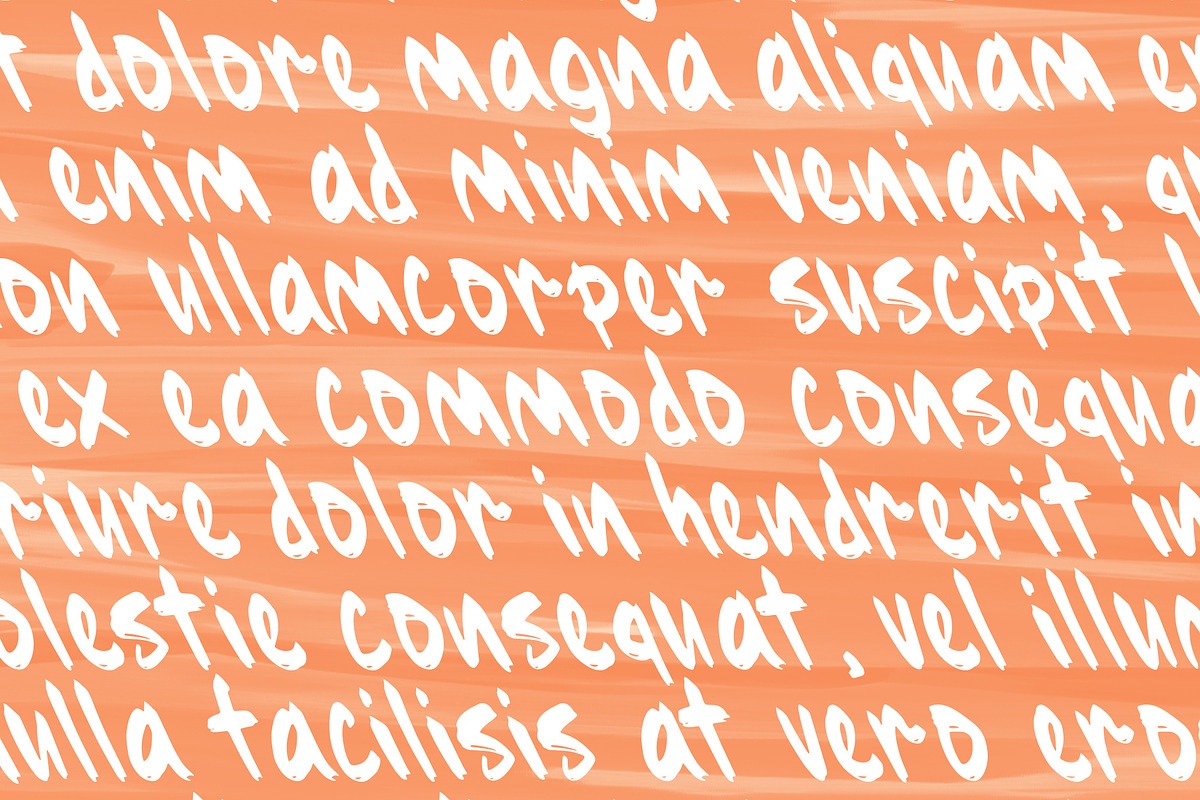 t dolore magna aliquam er
enim ad minim veniam, qu
on ullamcorper suscipit l
ex ea commodo consequa
riure dolor in hendrerit in
olestie consequat, vel illum
nulla tacilisis at vero ero